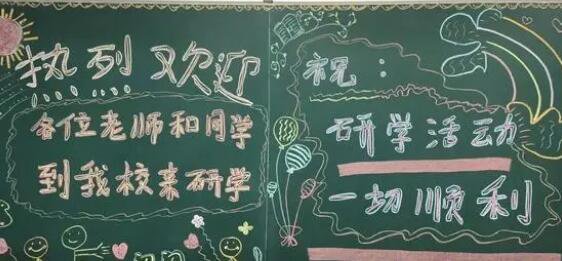 热列欢迎
各位老师和同学
到我校来研学
祝：
研学活动
一切顺利